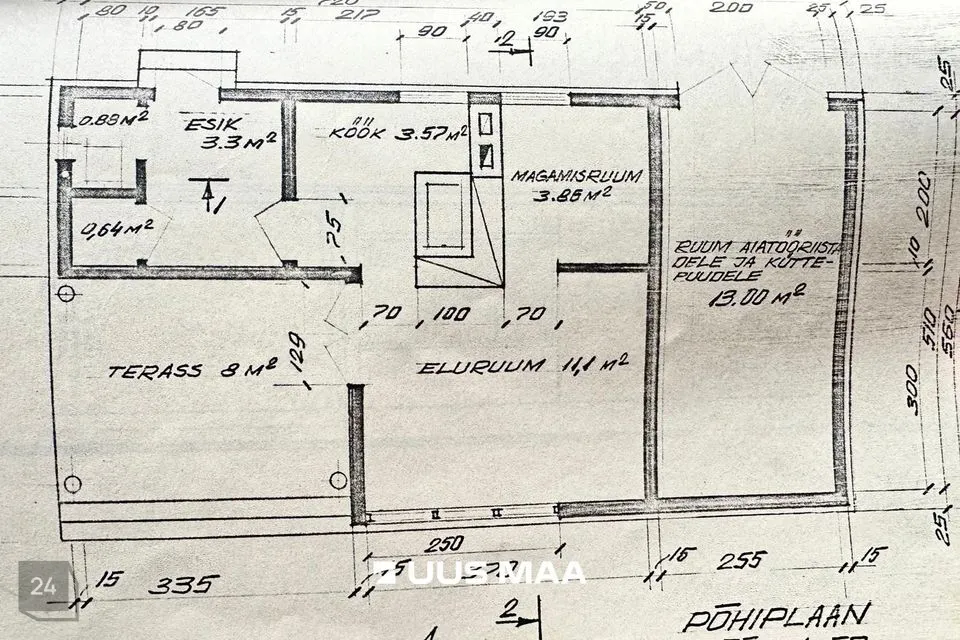 80 10 165 15 217 40 193 50 200 25 25
80 90 90 15
2
25
0.88 M²
ESIK
3.3 M²
KÖÖK 3.57 M²
MAGAMISRUUM
3.86 M²
200
1
0,64 M²
75
RUUM AIATÖÖRIISTA
DELE JA KÜTTE-
PUUDELE
13.00 M²
10
70 100 70
129
510
560
TERASS 8 M²
ELURUUM 11,1 M²
300
25
250
UUS MAA
24
15 335 15 255 15
2
PÕHIPLAAN